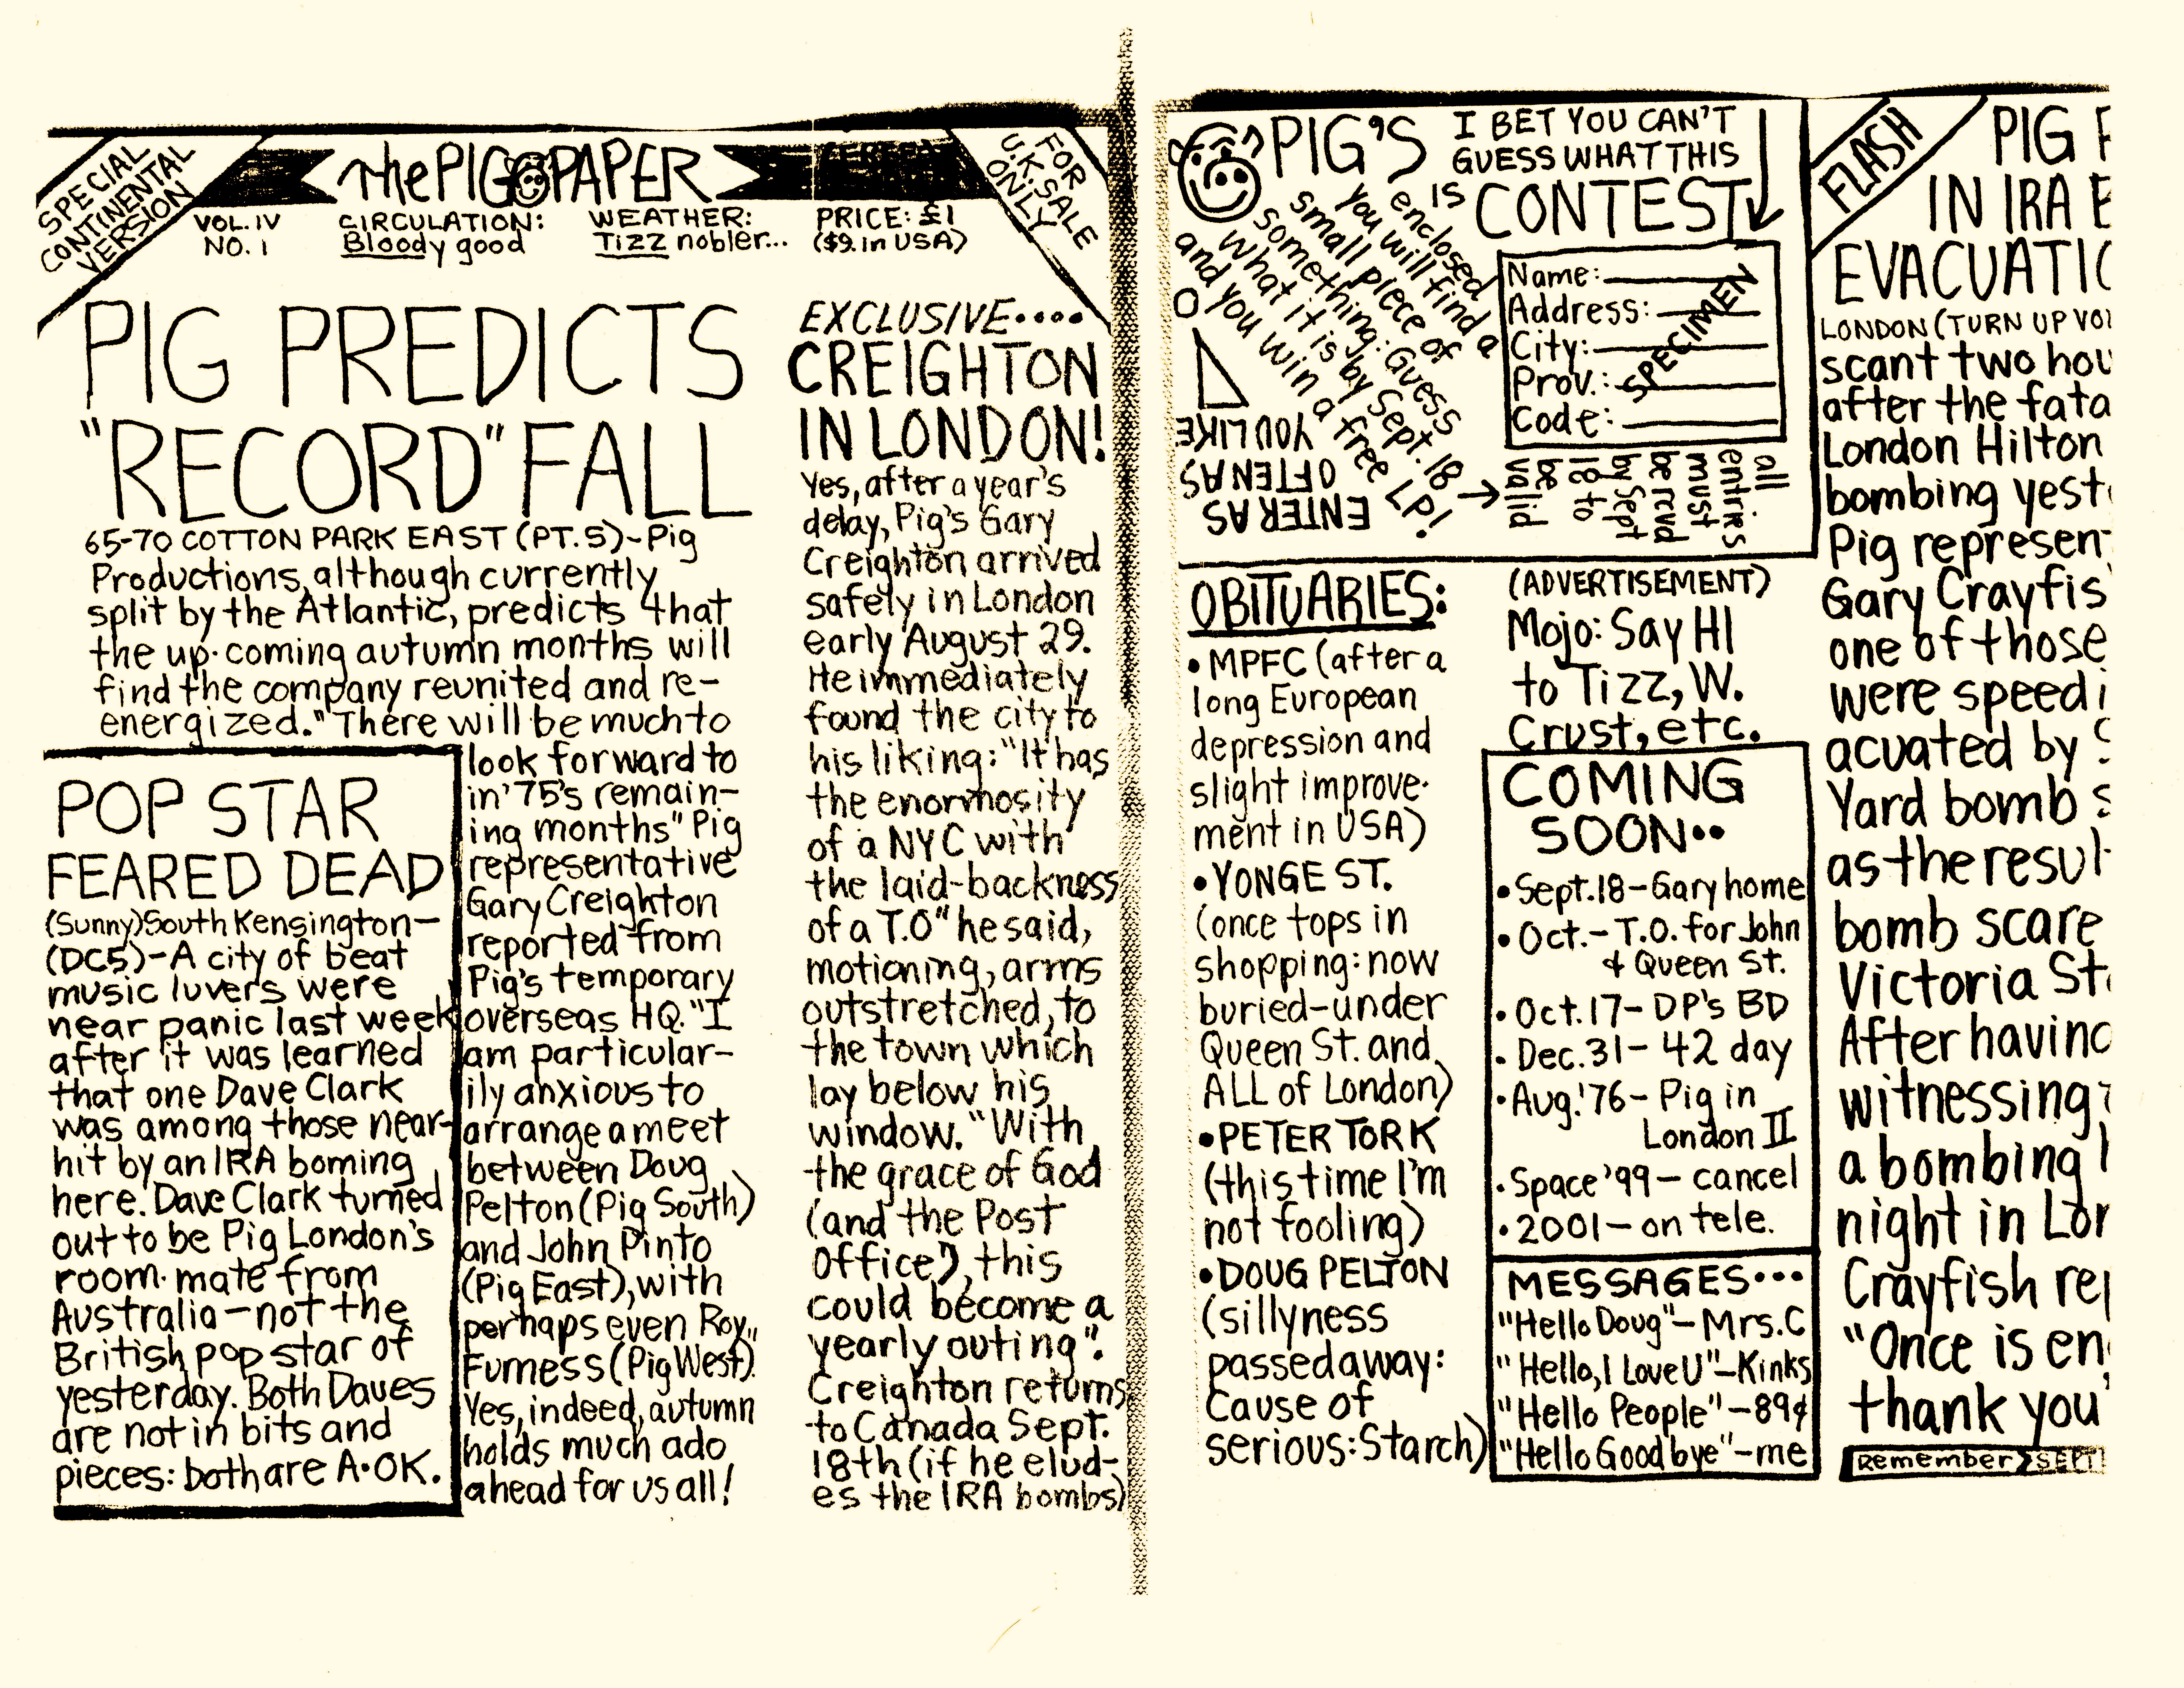 SPECIAL
CONTINENTAL
VERSION
the PIG PAPER
FOR
U.K. SALE
ONLY
VOL. IV
NO. 1
CIRCULATION:
Bloody good
WEATHER:
Tizz nobler...
PRICE: £1
($9. in USA)
PIG PREDICTS
"RECORD" FALL
65-70 COTTON PARK EAST (PT. 5)-Pig
Productions, although currently
split by the Atlantic, predicts that
the up-coming autumn months will
find the company reunited and re-
energized. "There will be much to
look forward to
in '75's remain-
ing months" Pig
representative
Gary Creighton
reported from
Pig's temporary
overseas HQ. "I
am particular-
ily anxious to
arrange a meet
between Doug
Pelton (Pig South)
and John Pinto
(Pig East), with
perhaps even Roy
Furness (Pig West)."
Yes, indeed, autumn
holds much ado
ahead for us all!
POP STAR
FEARED DEAD
(Sunny) South Kensington-
(DC5)-A city of beat
music luvers were
near panic last week
after it was learned
that one Dave Clark
was among those near-
hit by an IRA boming
here. Dave Clark turned
out to be Pig London's
room-mate from
Australia-not the
British pop star of
yesterday. Both Daves
are not in bits and
pieces: both are A•OK.
EXCLUSIVE....
CREIGHTON
IN LONDON!
Yes, after a year's
delay, Pig's Gary
Creighton arrived
safely in London
early August 29.
He immediately
found the city to
his liking: "It has
the enormosity
of a NYC with
the laid-backness
of a T.O" he said,
motioning, arms
outstretched, to
the town which
lay below his
window. "With
the grace of God
(and the Post
Office?), this
could become a
yearly outing".
Creighton returns
to Canada Sept.
18th (if he elud-
es the IRA bombs)
PIG'S
I BET YOU CAN'T
GUESS WHAT THIS
IS
CONTEST
enclosed
you will find a
small piece of
something: Guess
what it is by Sept. 18
and you win a free LP!
Name:
Address:
City:
Prov.:
Code:
SPECIMEN
ENTER AS
OFTEN AS
YOU LIKE
all
entriks
must
be rcvd
by Sept
18 to
be
valid
OBITUARIES:
• MPFC (after a
long European
depression and
slight improve-
ment in USA)
• YONGE ST.
(once tops in
shopping: now
buried-under
Queen St. and
ALL of London)
• PETER TORK
(this time I'm
not fooling)
• DOUG PELTON
(sillyness
passed away:
Cause of
serious: Starch)
(ADVERTISEMENT)
Mojo: Say HI
to Tizz, W.
Crust, etc.
COMING
SOON••
• Sept. 18-Gary home
• Oct.- T.O. for John
& Queen St.
• Oct. 17- DP's BD
• Dec. 31- 42 day
• Aug. '76- Pig in
London II
• Space '99- cancel
• 2001- on tele.
MESSAGES•••
"Hello Doug"- Mrs. C
"Hello, I Love U"-Kinks
"Hello People"-89¢
"Hello Goodbye"-me
FLASH
PIG
IN IRA
EVACUATIO
LONDON (TURN UP VOL
scant two hou
after the fata
London Hilton
bombing yest
Pig represen
Gary Crayfis
one of those
were speedi
acuated by
Yard bomb s
as the resul
bomb scare
Victoria St
After having
witnessing
a bombing
night in Lon
Crayfish rep
"Once is en
thank you"
Remember SEPT